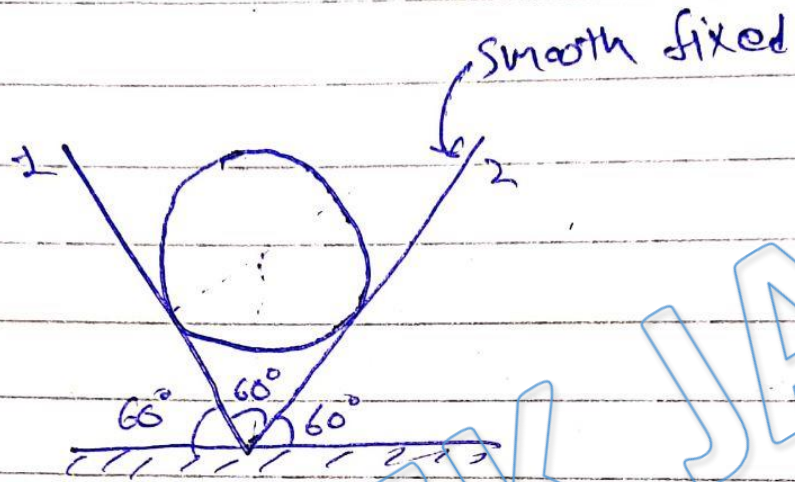 smooth fixed
1
2
60°
60°
60°
JA